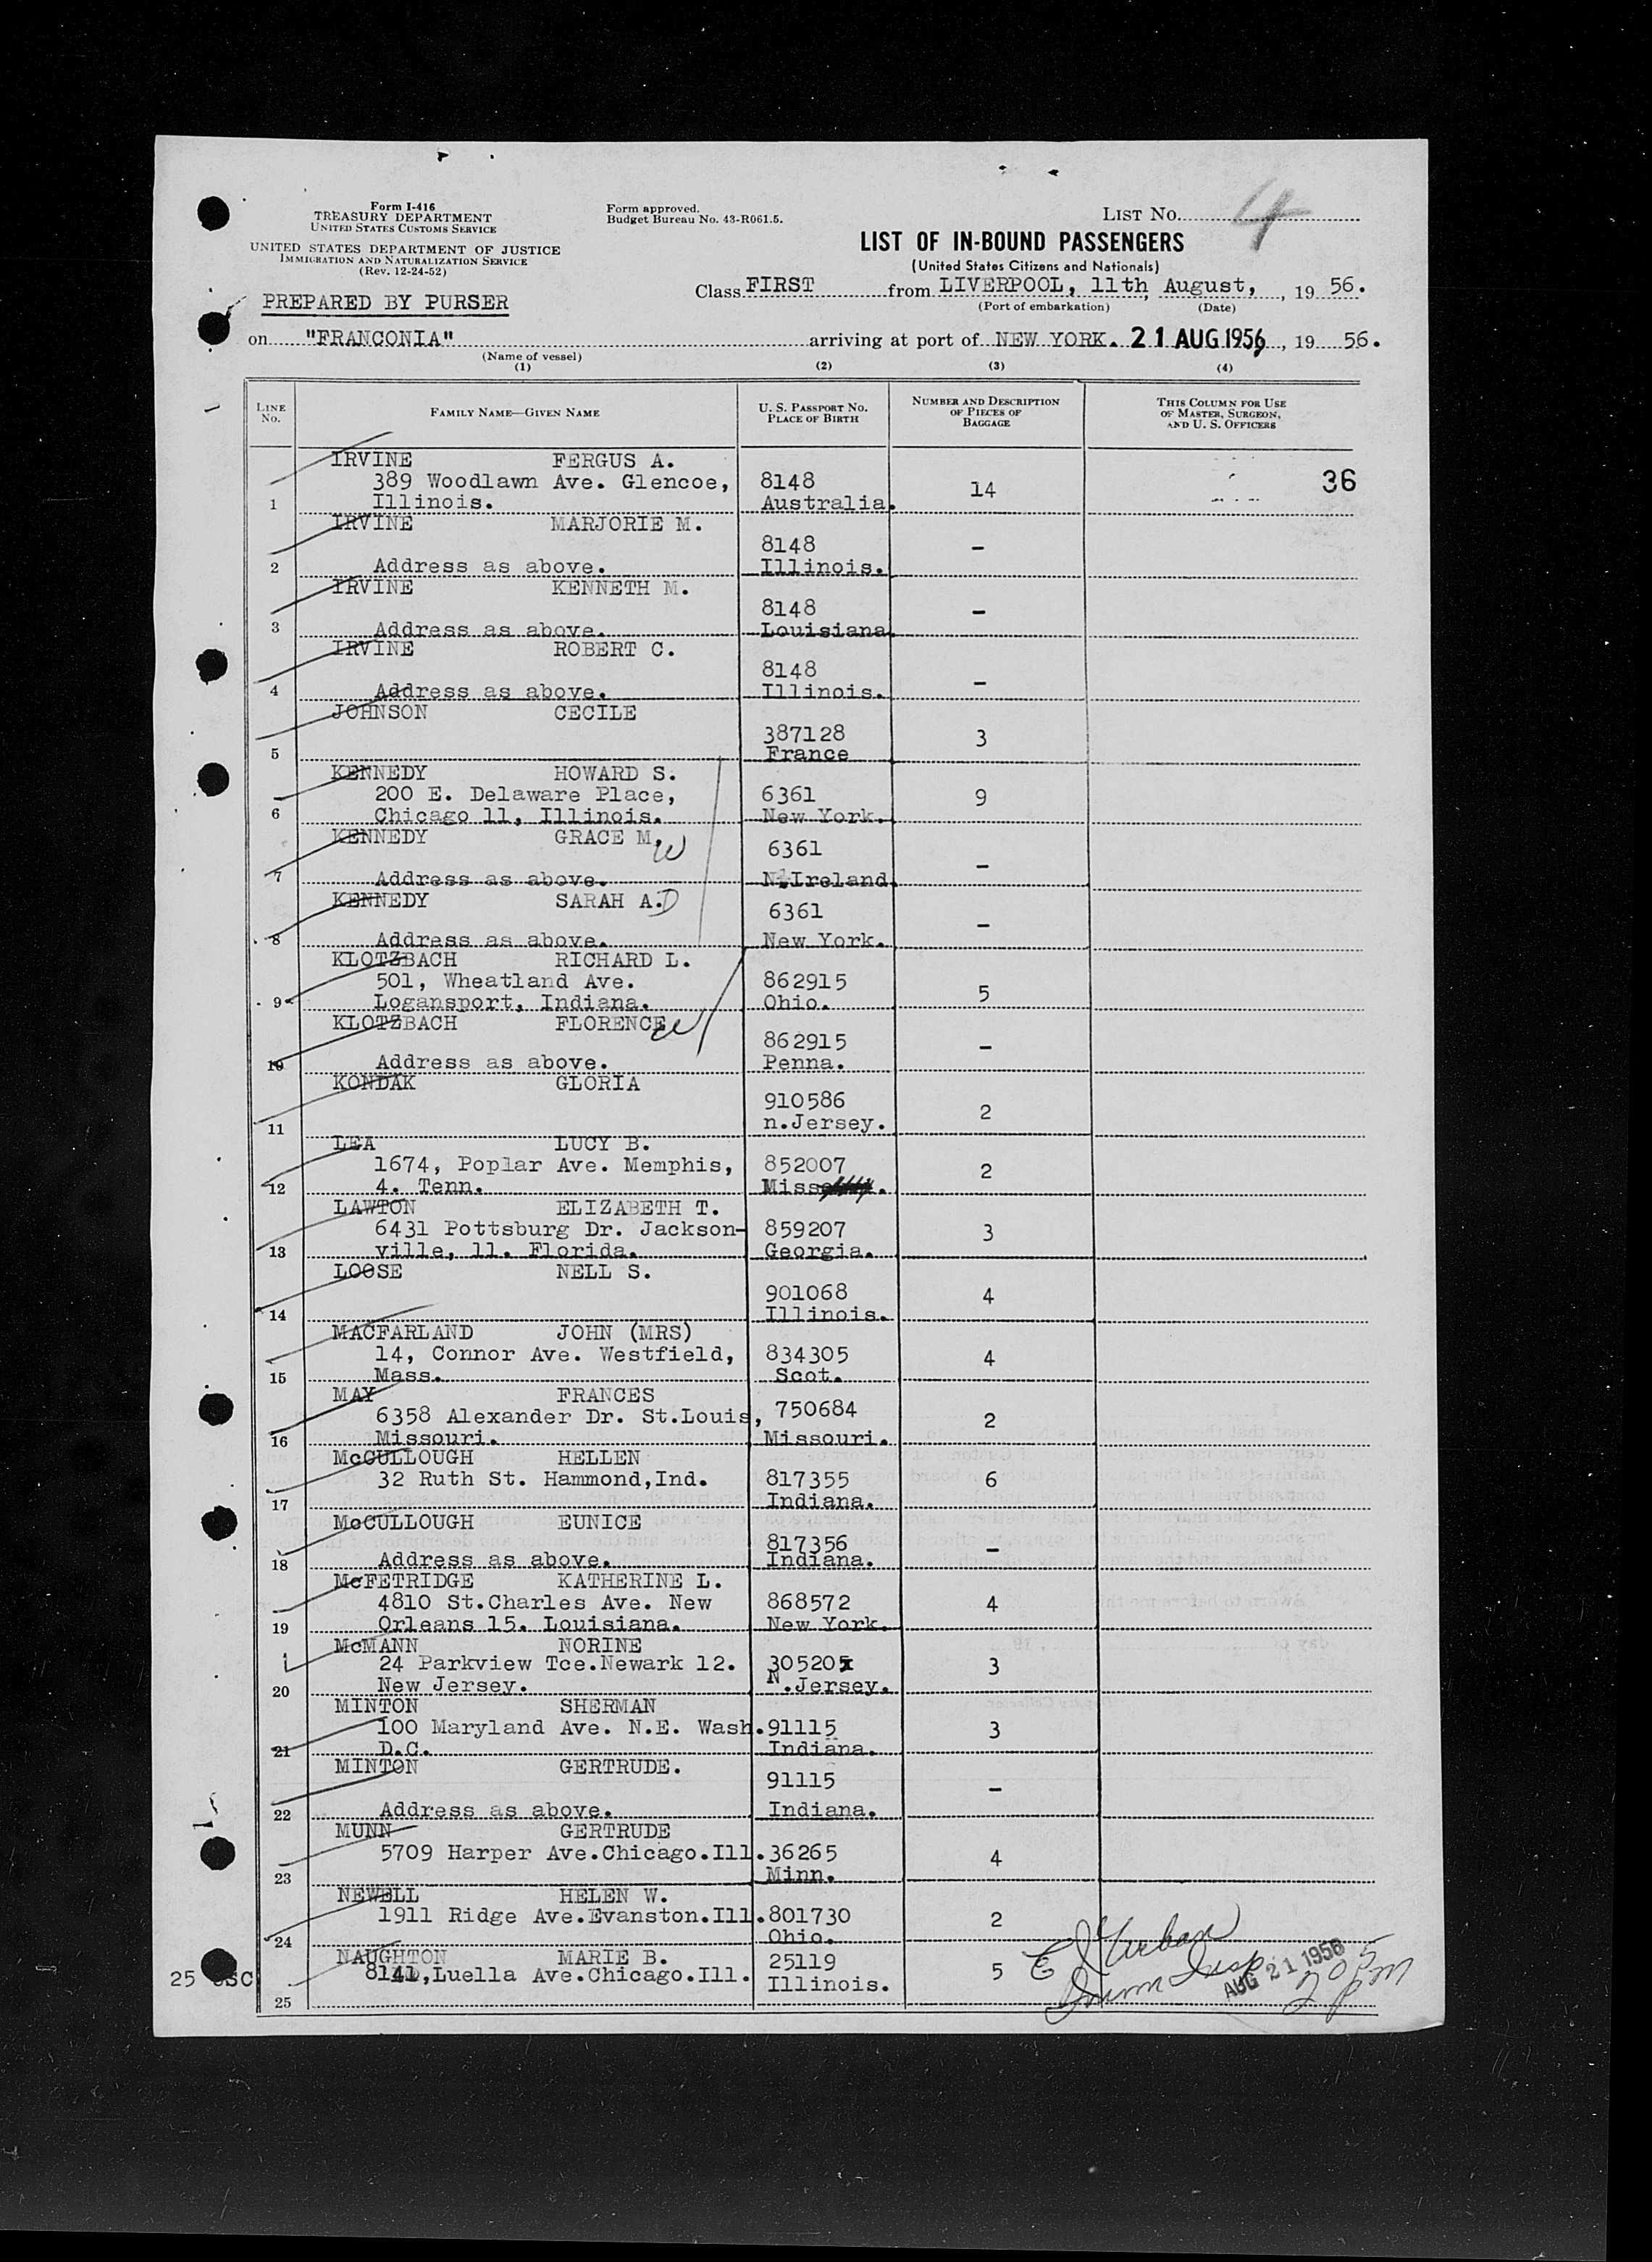 Form I-416
TREASURY DEPARTMENT
UNITED STATES CUSTOMS SERVICE
UNITED STATES DEPARTMENT OF JUSTICE
IMMIGRATION AND NATURALIZATION SERVICE
(Rev. 12-24-52)
Form approved.
Budget Bureau No. 43-R061.5.
LIST NO. 4
LIST OF IN-BOUND PASSENGERS
(United States Citizens and Nationals)
PREPARED BY PURSER
Class FIRST from LIVERPOOL, 11th August, , 19 56.
(Port of embarkation) (Date)
on "FRANCONIA" arriving at port of NEW YORK. 21 AUG 1956, 19 56.
(Name of vessel)
(1) (2) (3) (4)
LINE NO. FAMILY NAME—GIVEN NAME U. S. PASSPORT NO. PLACE OF BIRTH NUMBER AND DESCRIPTION OF PIECES OF BAGGAGE THIS COLUMN FOR USE OF MASTER, SURGEON, AND U. S. OFFICERS
IRVINE FERGUS A.
389 Woodlawn Ave. Glencoe, 8148 14 36
1 Illinois. Australia.
IRVINE MARJORIE M.
8148 -
2 Address as above. Illinois.
IRVINE KENNETH M.
8148 -
3 Address as above. Louisiana.
IRVINE ROBERT C.
8148 -
4 Address as above. Illinois.
JOHNSON CECILE
387128 3
5 France
KENNEDY HOWARD S.
200 E. Delaware Place, 6361 9
6 Chicago 11, Illinois. New York.
KENNEDY GRACE M. W
6361 -
7 Address as above. N.Ireland.
KENNEDY SARAH A. D
6361 -
8 Address as above. New York.
KLOTZBACH RICHARD L.
501, Wheatland Ave. 862915 5
9 Logansport, Indiana. Ohio.
KLOTZBACH FLORENCE W
862915 -
10 Address as above. Penna.
KONDAK GLORIA
910586 2
11 n.Jersey.
LEA LUCY B.
1674, Poplar Ave. Memphis, 852007 2
12 4. Tenn. Miss.
LAWTON ELIZABETH T.
6431 Pottsburg Dr. Jackson- 859207 3
13 ville, 11. Florida. Georgia.
LOOSE NELL S.
901068 4
14 Illinois.
MACFARLAND JOHN (MRS)
14, Connor Ave. Westfield, 834305 4
15 Mass. Scot.
MAY FRANCES
6358 Alexander Dr. St.Louis, 750684 2
16 Missouri. Missouri.
McCULLOUGH HELLEN
32 Ruth St. Hammond,Ind. 817355 6
17 Indiana.
McCULLOUGH EUNICE
817356 -
18 Address as above. Indiana.
McFETRIDGE KATHERINE L.
4810 St.Charles Ave. New 868572 4
19 Orleans 15. Louisiana. New York.
McMANN NORINE
24 Parkview Tce.Newark 12. 305205 3
20 New Jersey. N.Jersey.
MINTON SHERMAN
100 Maryland Ave. N.E. Wash. 91115 3
21 D.C. Indiana.
MINTON GERTRUDE.
91115 -
22 Address as above. Indiana.
MUNN GERTRUDE
5709 Harper Ave.Chicago.Ill. 36265 4
23 Minn.
NEWELL HELEN W.
1911 Ridge Ave.Evanston.Ill. 801730 2
24 Ohio.
NAUGHTON MARIE B. 25119
25 USC 8141,Luella Ave.Chicago.Ill. Illinois. 5
25
E J Urban
Imm Insp
AUG 21 1956